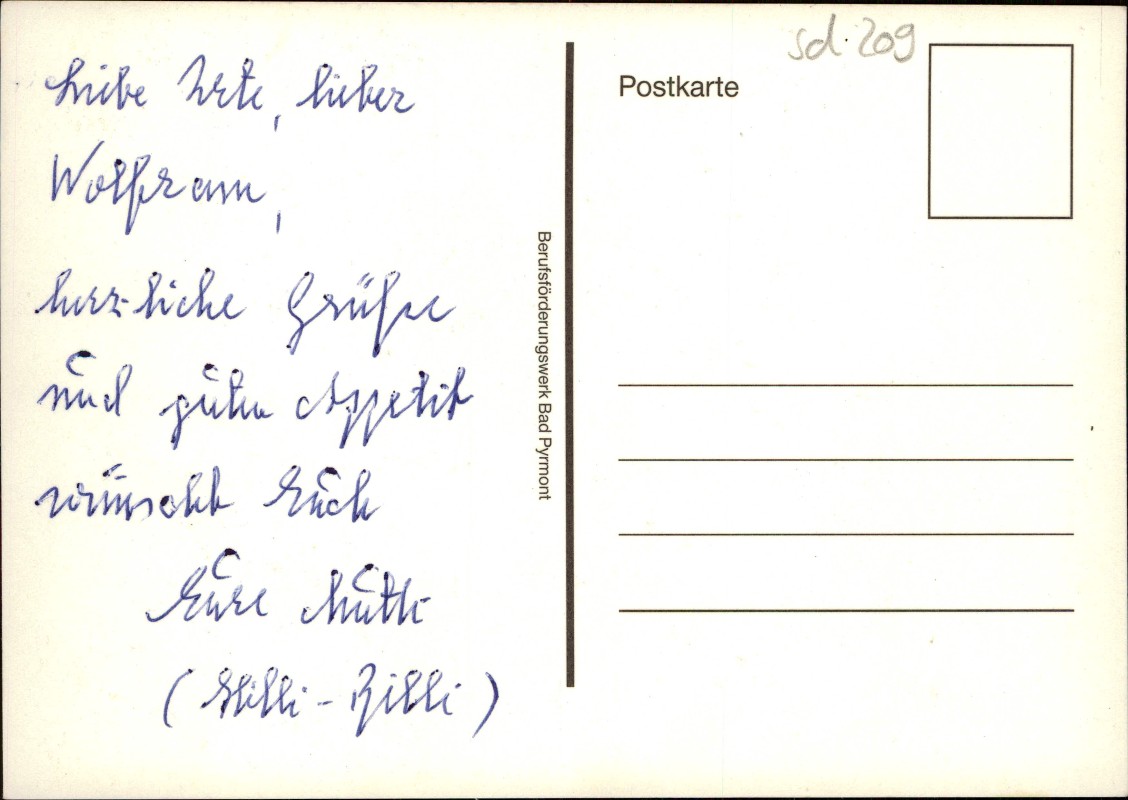 Liebe Urte, lieber
Wolfram,
herzliche Grüße
und guten Appetit
wünscht Euch
Eure Mutti
Berufsförderungswerk Bad Pyrmont
Postkarte
sd 209